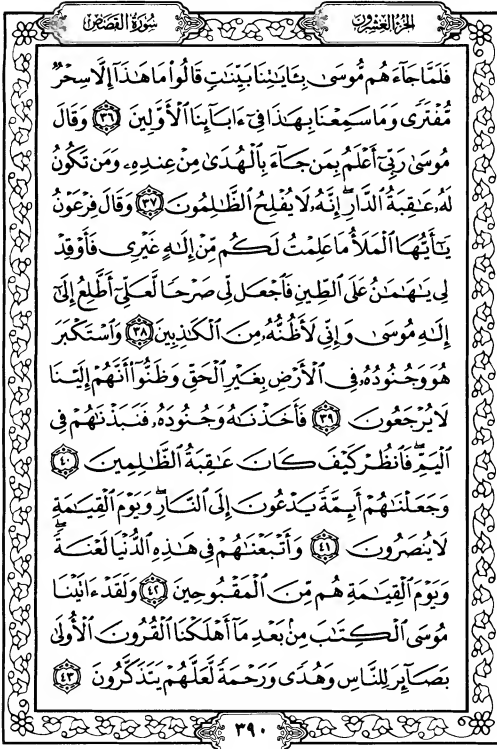 سُورَةُ القَصَصِ
الجُزءُ العِشرُونَ
فَلَمَّا جَآءَهُم مُّوسَىٰ بِـَٔايَٰتِنَا بَيِّنَٰتٖ قَالُواْ مَا هَٰذَآ إِلَّا سِحۡرٞ
مُّفۡتَرٗى وَمَا سَمِعۡنَا بِهَٰذَا فِيٓ ءَابَآئِنَا ٱلۡأَوَّلِينَ ٣٦ وَقَالَ
مُوسَىٰ رَبِّيٓ أَعۡلَمُ بِمَن جَآءَ بِٱلۡهُدَىٰ مِنۡ عِندِهِۦ وَمَن تَكُونُ
لَهُۥ عَٰقِبَةُ ٱلدَّارِۖ إِنَّهُۥ لَا يُفۡلِحُ ٱلظَّٰلِمُونَ ٣٧ وَقَالَ فِرۡعَوۡنُ
يَٰٓأَيُّهَا ٱلۡمَلَأُ مَا عَلِمۡتُ لَكُم مِّنۡ إِلَٰهٍ غَيۡرِي فَأَوۡقِدۡ
لِي يَٰهَٰمَٰنُ عَلَى ٱلطِّينِ فَٱجۡعَل لِّي صَرۡحٗا لَّعَلِّيٓ أَطَّلِعُ إِلَىٰٓ
إِلَٰهِ مُوسَىٰ وَإِنِّي لَأَظُنُّهُۥ مِنَ ٱلۡكَٰذِبِينَ ٣٨ وَٱسۡتَكۡبَرَ
هُوَ وَجُنُودُهُۥ فِي ٱلۡأَرۡضِ بِغَيۡرِ ٱلۡحَقِّ وَظَنُّوٓاْ أَنَّهُمۡ إِلَيۡنَا
لَا يُرۡجَعُونَ ٣٩ فَأَخَذۡنَٰهُ وَجُنُودَهُۥ فَنَبَذۡنَٰهُمۡ فِي
ٱلۡيَمِّۖ فَٱنظُرۡ كَيۡفَ كَانَ عَٰقِبَةُ ٱلظَّٰلِمِينَ ٤٠
وَجَعَلۡنَٰهُمۡ أَئِمَّةٗ يَدۡعُونَ إِلَى ٱلنَّارِۖ وَيَوۡمَ ٱلۡقِيَٰمَةِ
لَا يُنصَرُونَ ٤١ وَأَتۡبَعۡنَٰهُمۡ فِي هَٰذِهِ ٱلدُّنۡيَا لَعۡنَةٗۖ
وَيَوۡمَ ٱلۡقِيَٰمَةِ هُم مِّنَ ٱلۡمَقۡبُوحِينَ ٤٢ وَلَقَدۡ ءَاتَيۡنَا
مُوسَى ٱلۡكِتَٰبَ مِنۢ بَعۡدِ مَآ أَهۡلَكۡنَا ٱلۡقُرُونَ ٱلۡأُولَىٰ
بَصَآئِرَ لِلنَّاسِ وَهُدٗى وَرَحۡمَةٗ لَّعَلَّهُمۡ يَتَذَكَّرُونَ ٤٣
٣٩٠